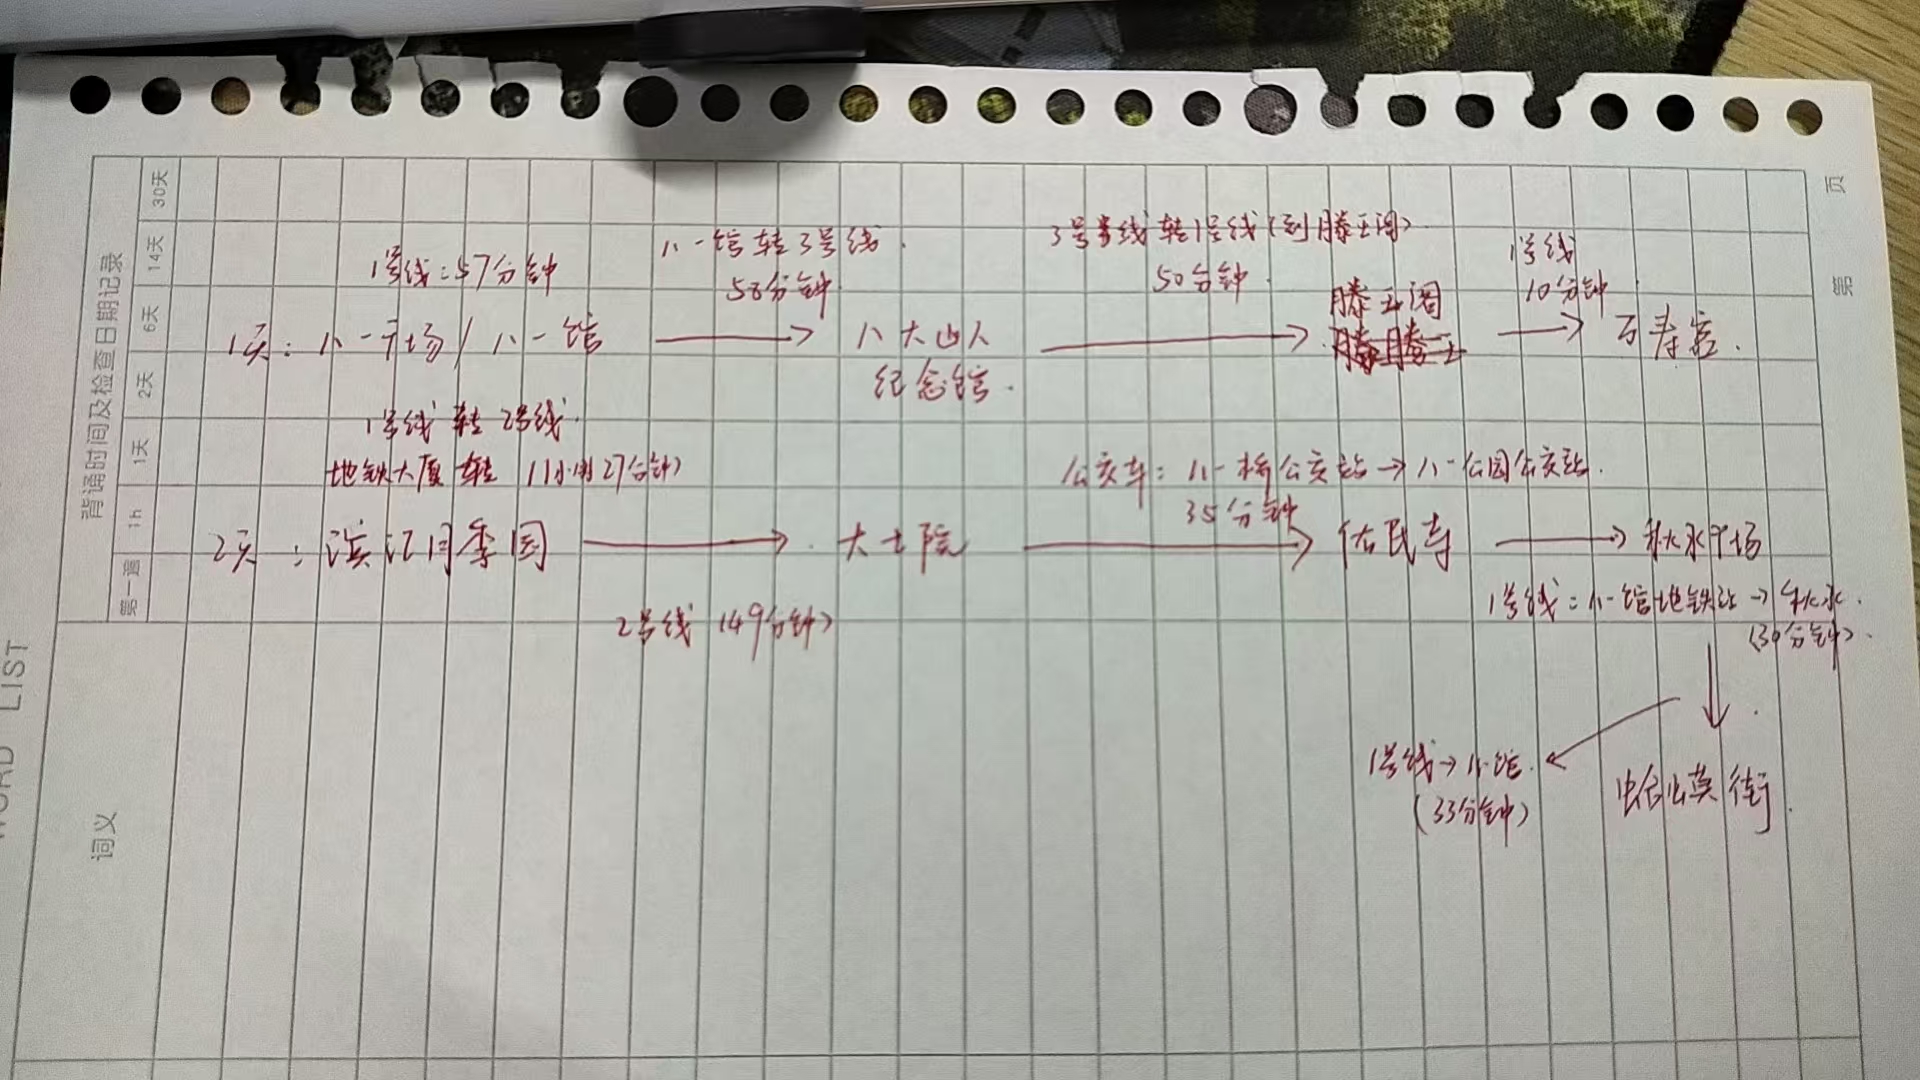 页
第
背诵时间及检查日期记录
30天
14天
6天
2天
1天
1h
第一遍
WORD LIST
词义
1号线:57分钟
八一馆转3号线
58分钟
3号线转1号线(到滕王阁)
50分钟
1号线
10分钟
1天:八一广场/八一馆 → 八大山人纪念馆 → 滕王阁 → 万寿宫
1号线转2号线
地铁大厦转(1小时27分钟)
公交车:八一桥公交站→八一公园公交站
35分钟
2天:滨江月季园 → 大士院 → 佑民寺 → 秋水广场
2号线(49分钟)
1号线:八一馆地铁站→秋水
(30分钟)
1号线→八一馆
(33分钟)
蛤蟆街